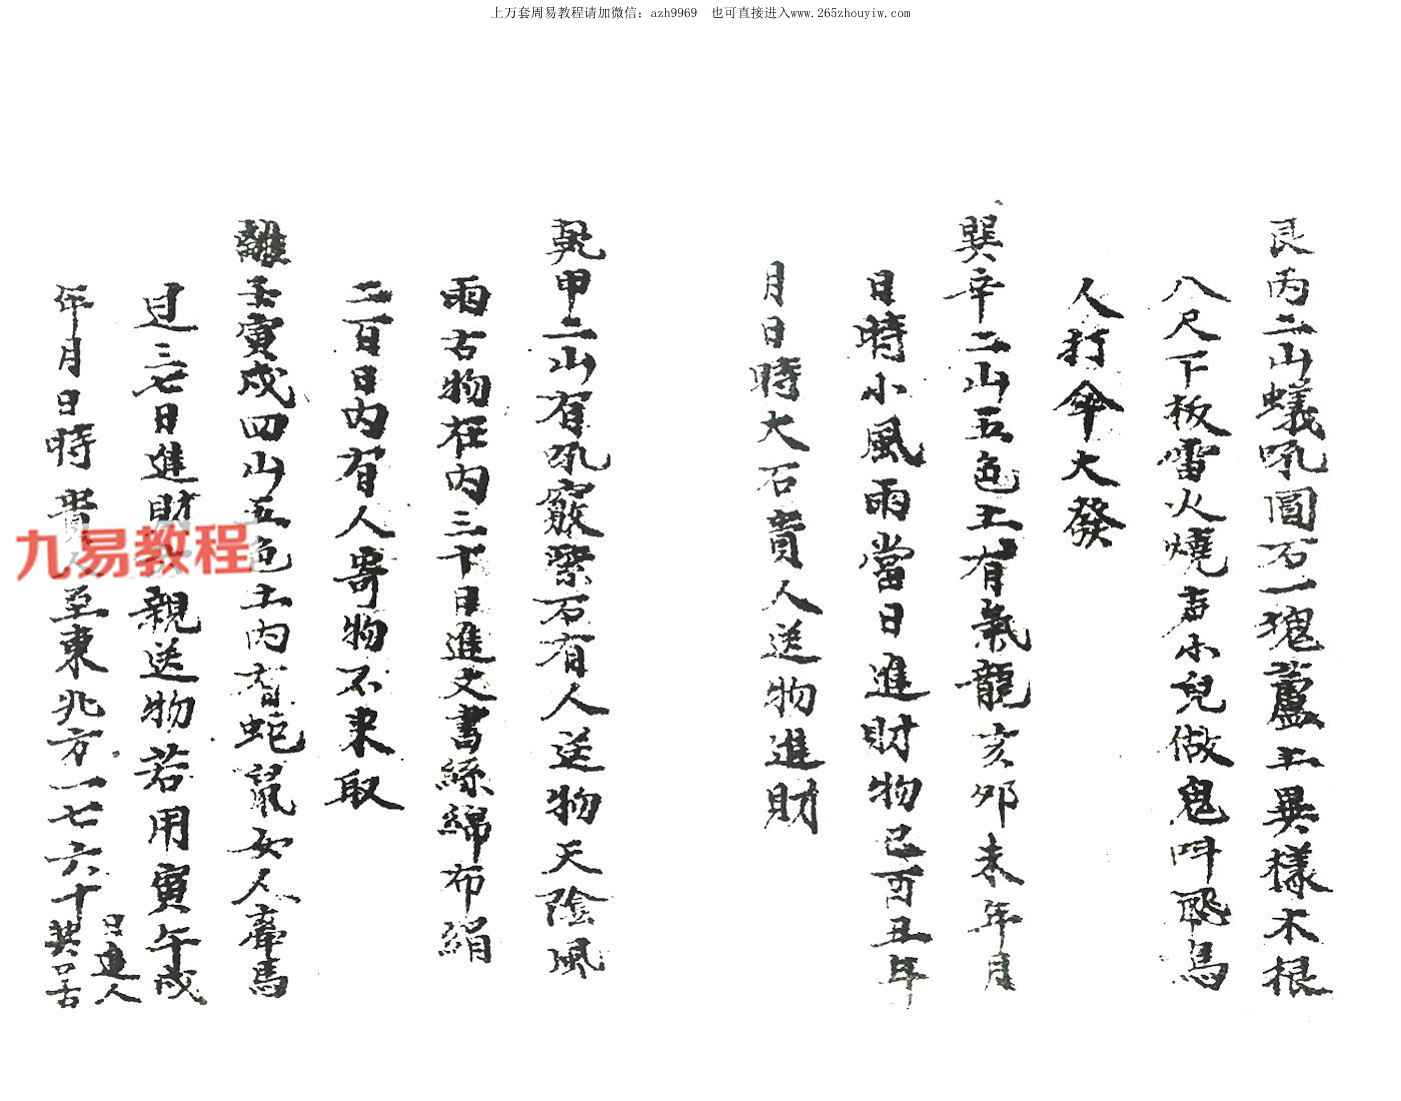 上万套周易教程请加微信：azh9969 也可直接进入www.265zhouyiw.com
艮丙二山蟻吼圓石一塊蘆土異樣木根
八尺下板雷火燒声小兒做鬼叫飛鳥
人打傘大發
巽辛二山五色土有氣龍亥卯未年月
日時小風雨當日進財物巳酉丑年
月日時大石貴人送物進財
乾甲二山有吼竅緊石有人送物天陰風
雨古物在内三十日進文書絲綿布絹
二百日内有人寄物不來取
離壬寅戍四山五色土内有蛇鼠女人牽馬
过三七日進財 親送物若用寅午戍
年月日時貴人至東北方一七六十日進人
其
九易教程